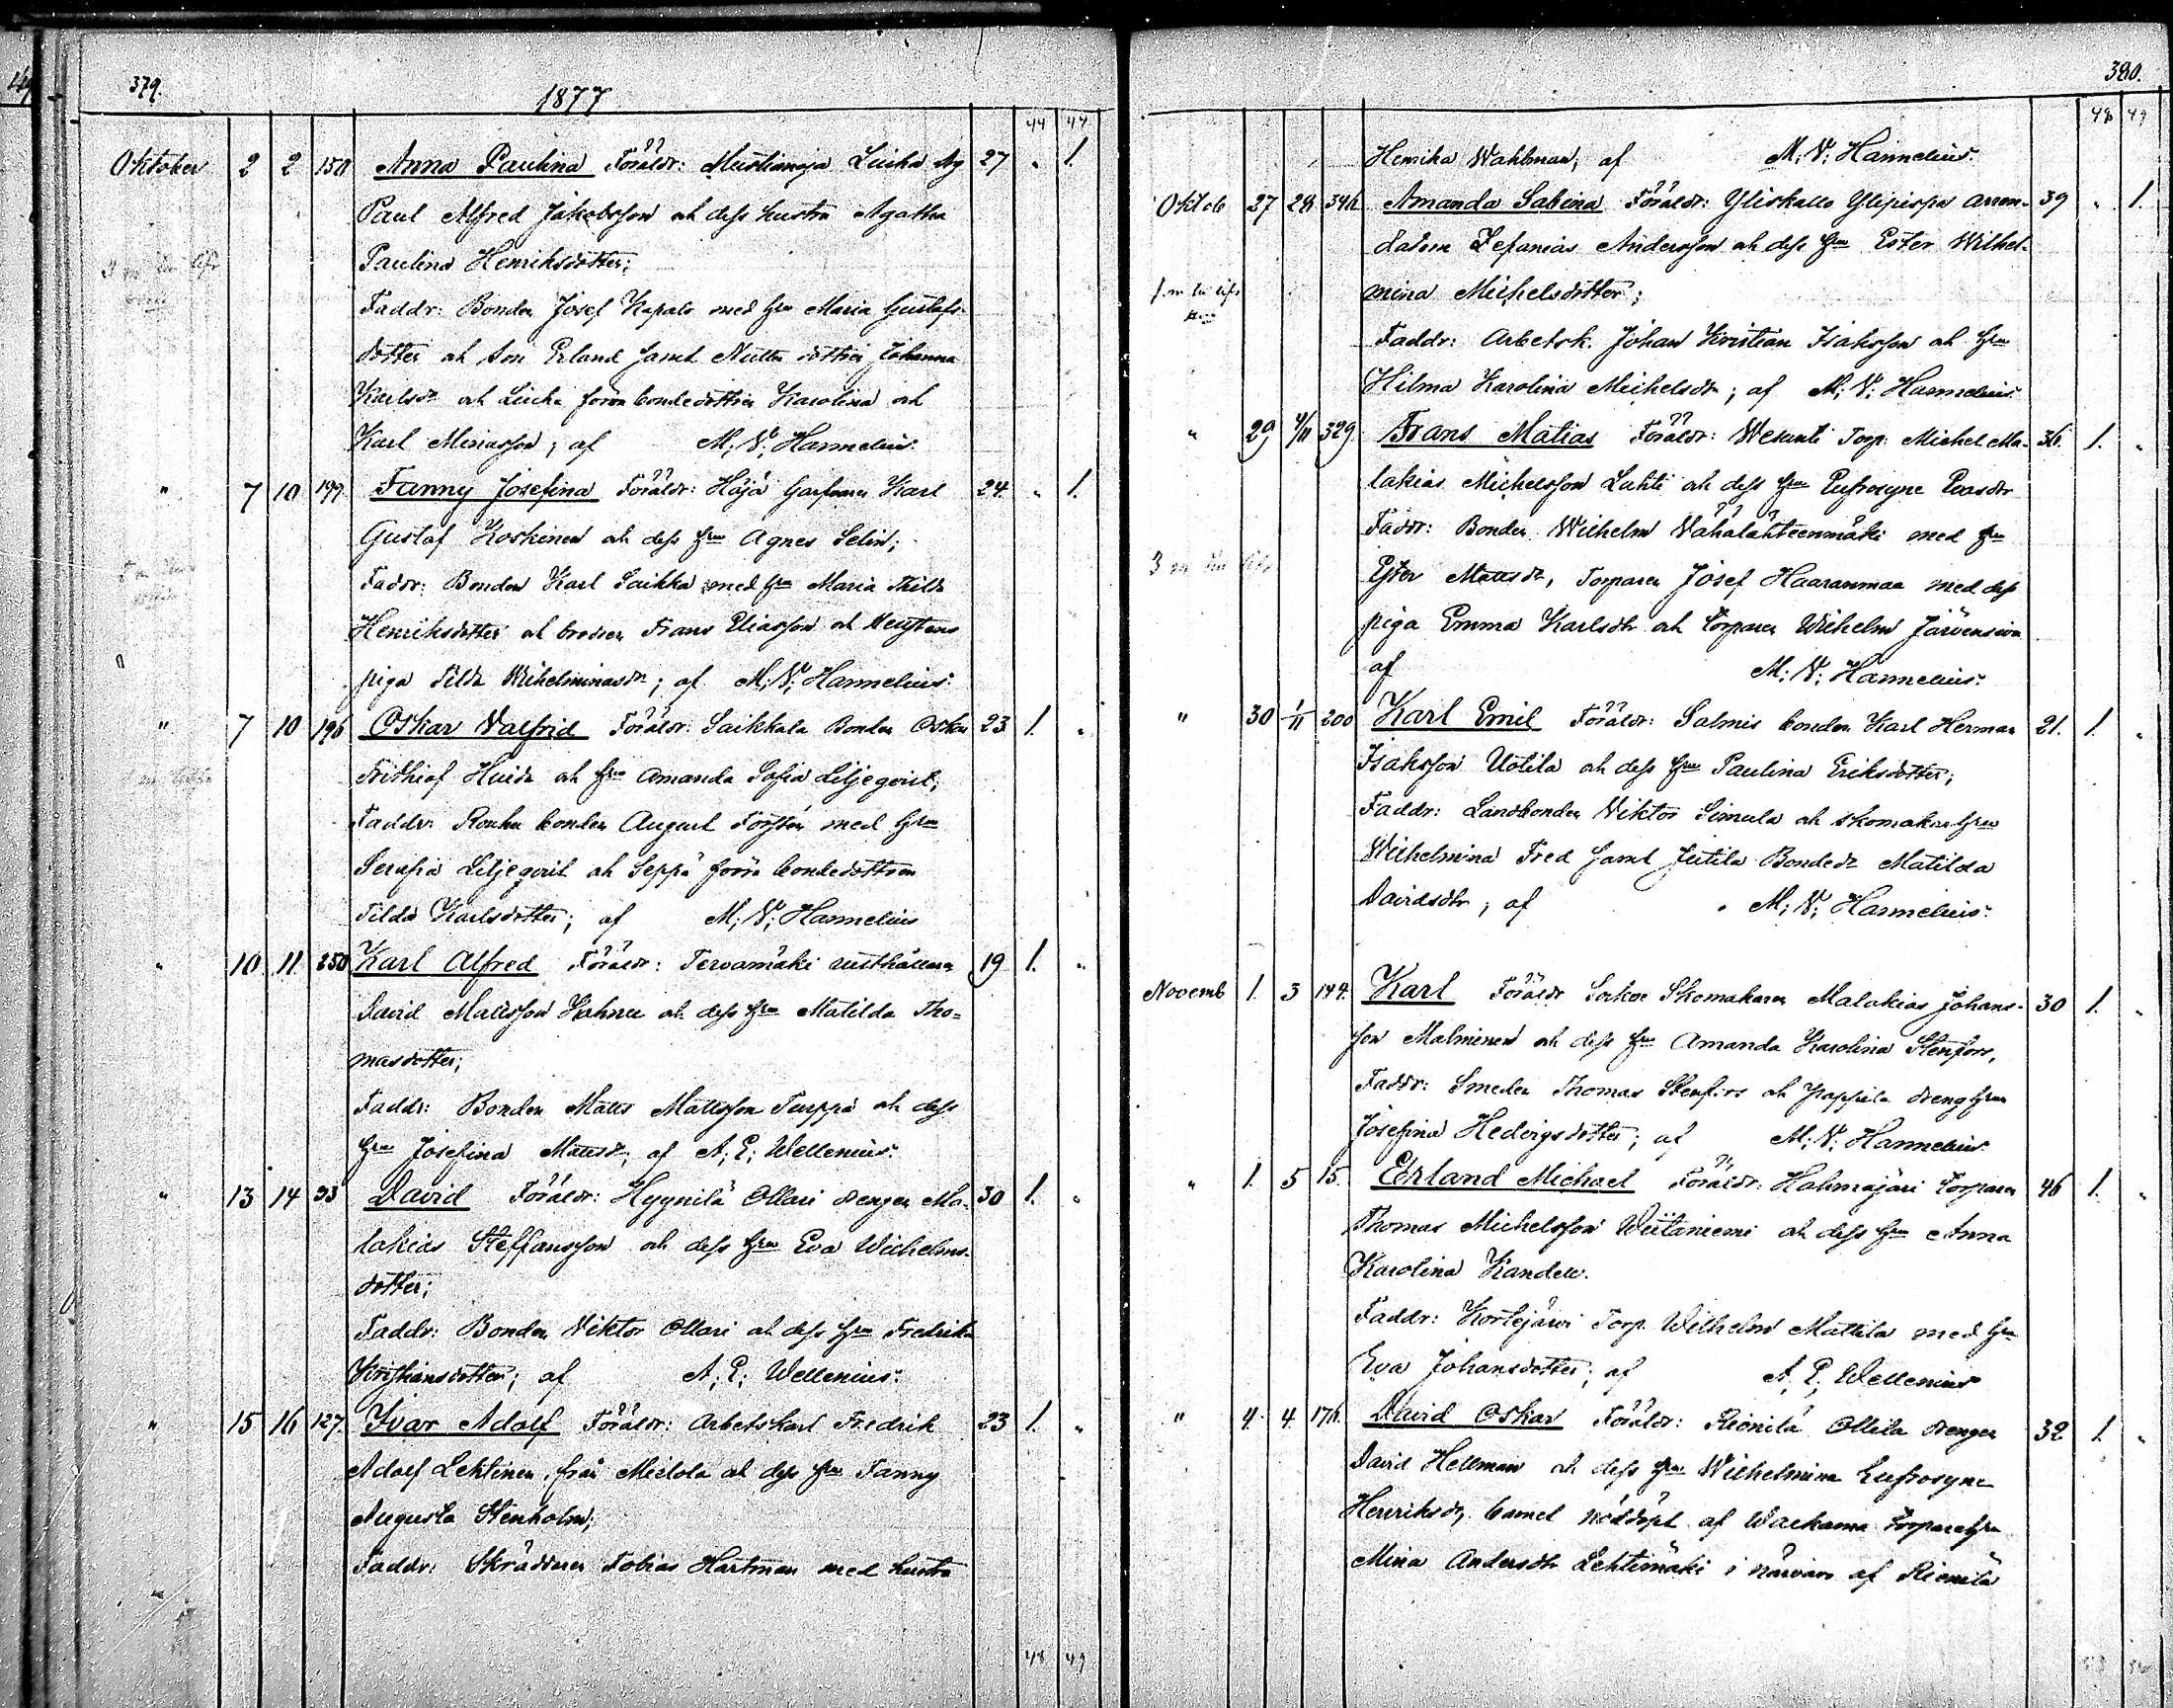 379.
1877
44 47
Oktober 2 2 150 Anna Paulina Föräldr: Mustianoja Luicha
27 " 1.
Paul Alfred Jakobsson och dess hustru Agatha
Paulina Henriksdotter;
Faddr: Bonden Josef Kapalo med hru Maria Gustafs-
dotter och son Erland samt dottren Johanna
Karlsdr och Luicha förra bondedottren Karolina och
Karl ; af M: N: Hannelius.
" 7 10 197 Fanny Josefina Föräldr: Höjä Karl 24 " 1.
Gustaf Koskinen och dess hru Agnes Selin;
Faddr: Bonden Karl Saikka med hru Maria Thilda
Henriksdotter och brodren Frans Eliasson och
piga Tilda Wilhelminasdr; af M: N: Hannelius.
" 7 10 196 Oskar Valfrid Föräldr: Saikkala Bonden Oskar 23 1. "
Frithiof och hru Amanda Sofia Liljeqvist;
Faddr: Rouhu bonden August Förstén med hru
Serafia Liljeqvist och Seppä förra bondedottren
Tilda Karlsdotter; af M: N: Hannelius
" 10 11 250 Karl Alfred Föräldr: Tervamäki rusthållaren 19 1. "
David Mattsson och dess hru Matilda Tho-
masdotter;
Faddr: Bonden Matts Mattsson Turppa och dess
hru Josefina Mattsdr; af A: E: Wellenius.
" 13 14 33 David Föräldr: Hyynilä Ollari drengen Ma- 30 1. "
lakias Steffansson och dess hru Eva Wilhelms-
dotter;
Faddr: Bonden Viktor Ollari och dess hru Fredrika
Kristiansdotter; af A: E: Wellenius.
" 15 16 127. Ivar Adolf Föräldr: Arbetskarl Fredrik 23 1. "
Adolf Lehtinen, från och dess hru Fanny
Augusta Stenholm;
Faddr: Skräddaren Tobias Hartman med hustru
48 49
380.
48 49
Henrika Wahlman; af M: N: Hannelius.
Oktob 27 28 346. Amanda Sabina Föräldr: Yliskallo Ylipispa Arren- 39 " 1.
datorn Zefanias Andersson och dess hru Ester Wilhel-
mina Michelsdotter;
Faddr: Arbetsk. Johan Kristian Isaksson och hru
Hilma Karolina Michelsdr; af M: N: Hannelius.
" 29 4/11 329 Frans Matias Föräldr: Wesunti Torp. Michel Ma- 36. 1. "
lakias Michelsson Lahti och dess hru Eufrosyne Evasdtr
Faddr: Bonden Wilhelm Vähälähteenmäki med hru
Ester Mattsdr, Torparen Josef Haaranmaa med dess
piga Emma Karlsdtr och torparen Wilhelm
af M: N: Hannelius.
" 30 1/11 200 Karl Emil Föräldr: Salmis bonden Karl Herman 21. 1. "
Isaksson Uotila och dess hru Paulina Eriksdotter;
Faddr: Landbonden Viktor Simula och skomakarehru
Wilhelmina Fred samt Juttila Bondedr Matilda
Davidsdtr; af M: N: Hannelius.
Novemb 1. 3 144. Karl Föräldr Skomakaren Malakias Johans- 30 1. "
son Malminen och dess hru Amanda Karolina Stenfors,
Faddr: Smeden Thomas Stenfors och drenghru
Josefina Hedvigsdotter; af M: N: Hannelius.
" 1. 5 15. Erland Michael Föräldr: Halmajäri torparen 46 1. "
Thomas Michelsson Wiitaniemi och dess hru Anna
Karolina Kandell.
Faddr: Kortejärvi Torp. Wilhelm Mattila med hru
Eva Johansdotter; af A. E. Wellenius
" 4. 4. 176. David Oskar Föräldr: Rionilä Ollila drengen 32 1. "
David Hellman och dess hru Wilhelmina Eufrosyne
Henriksdr, barnet nöddöpt af torparehru
Mina Andersdtr Lehtimäki i närvaro af Rionilä